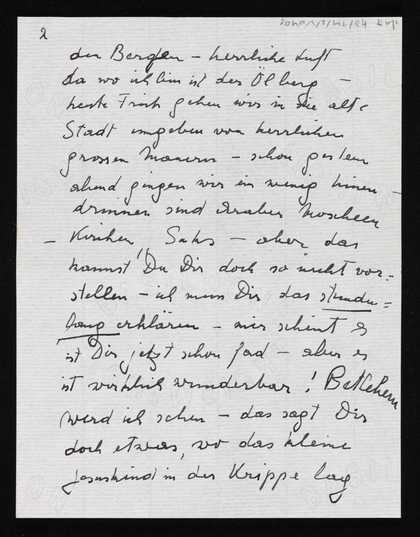 2
den Bergen – herrliche Luft
da wo ich bin ist der Ölberg –
heute Früh gehen wir in die alte
Stadt umgeben von herrlichen
grossen Mauern – schon gestern
abend gingen wir ein wenig hinein –
drinnen sind Araber Moscheen
– Kirchen, Suks – aber das
kannst Du Dir doch so nicht vor-
stellen – ich muss Dir das stunden=
lang erklären – mir scheint es
ist Dir jetzt schon fad – aber es
ist wirklich wunderbar! Betlehem
werd ich sehen – das sagt Dir
doch etwas, wo das kleine
Jesuskind in der Krippe lag